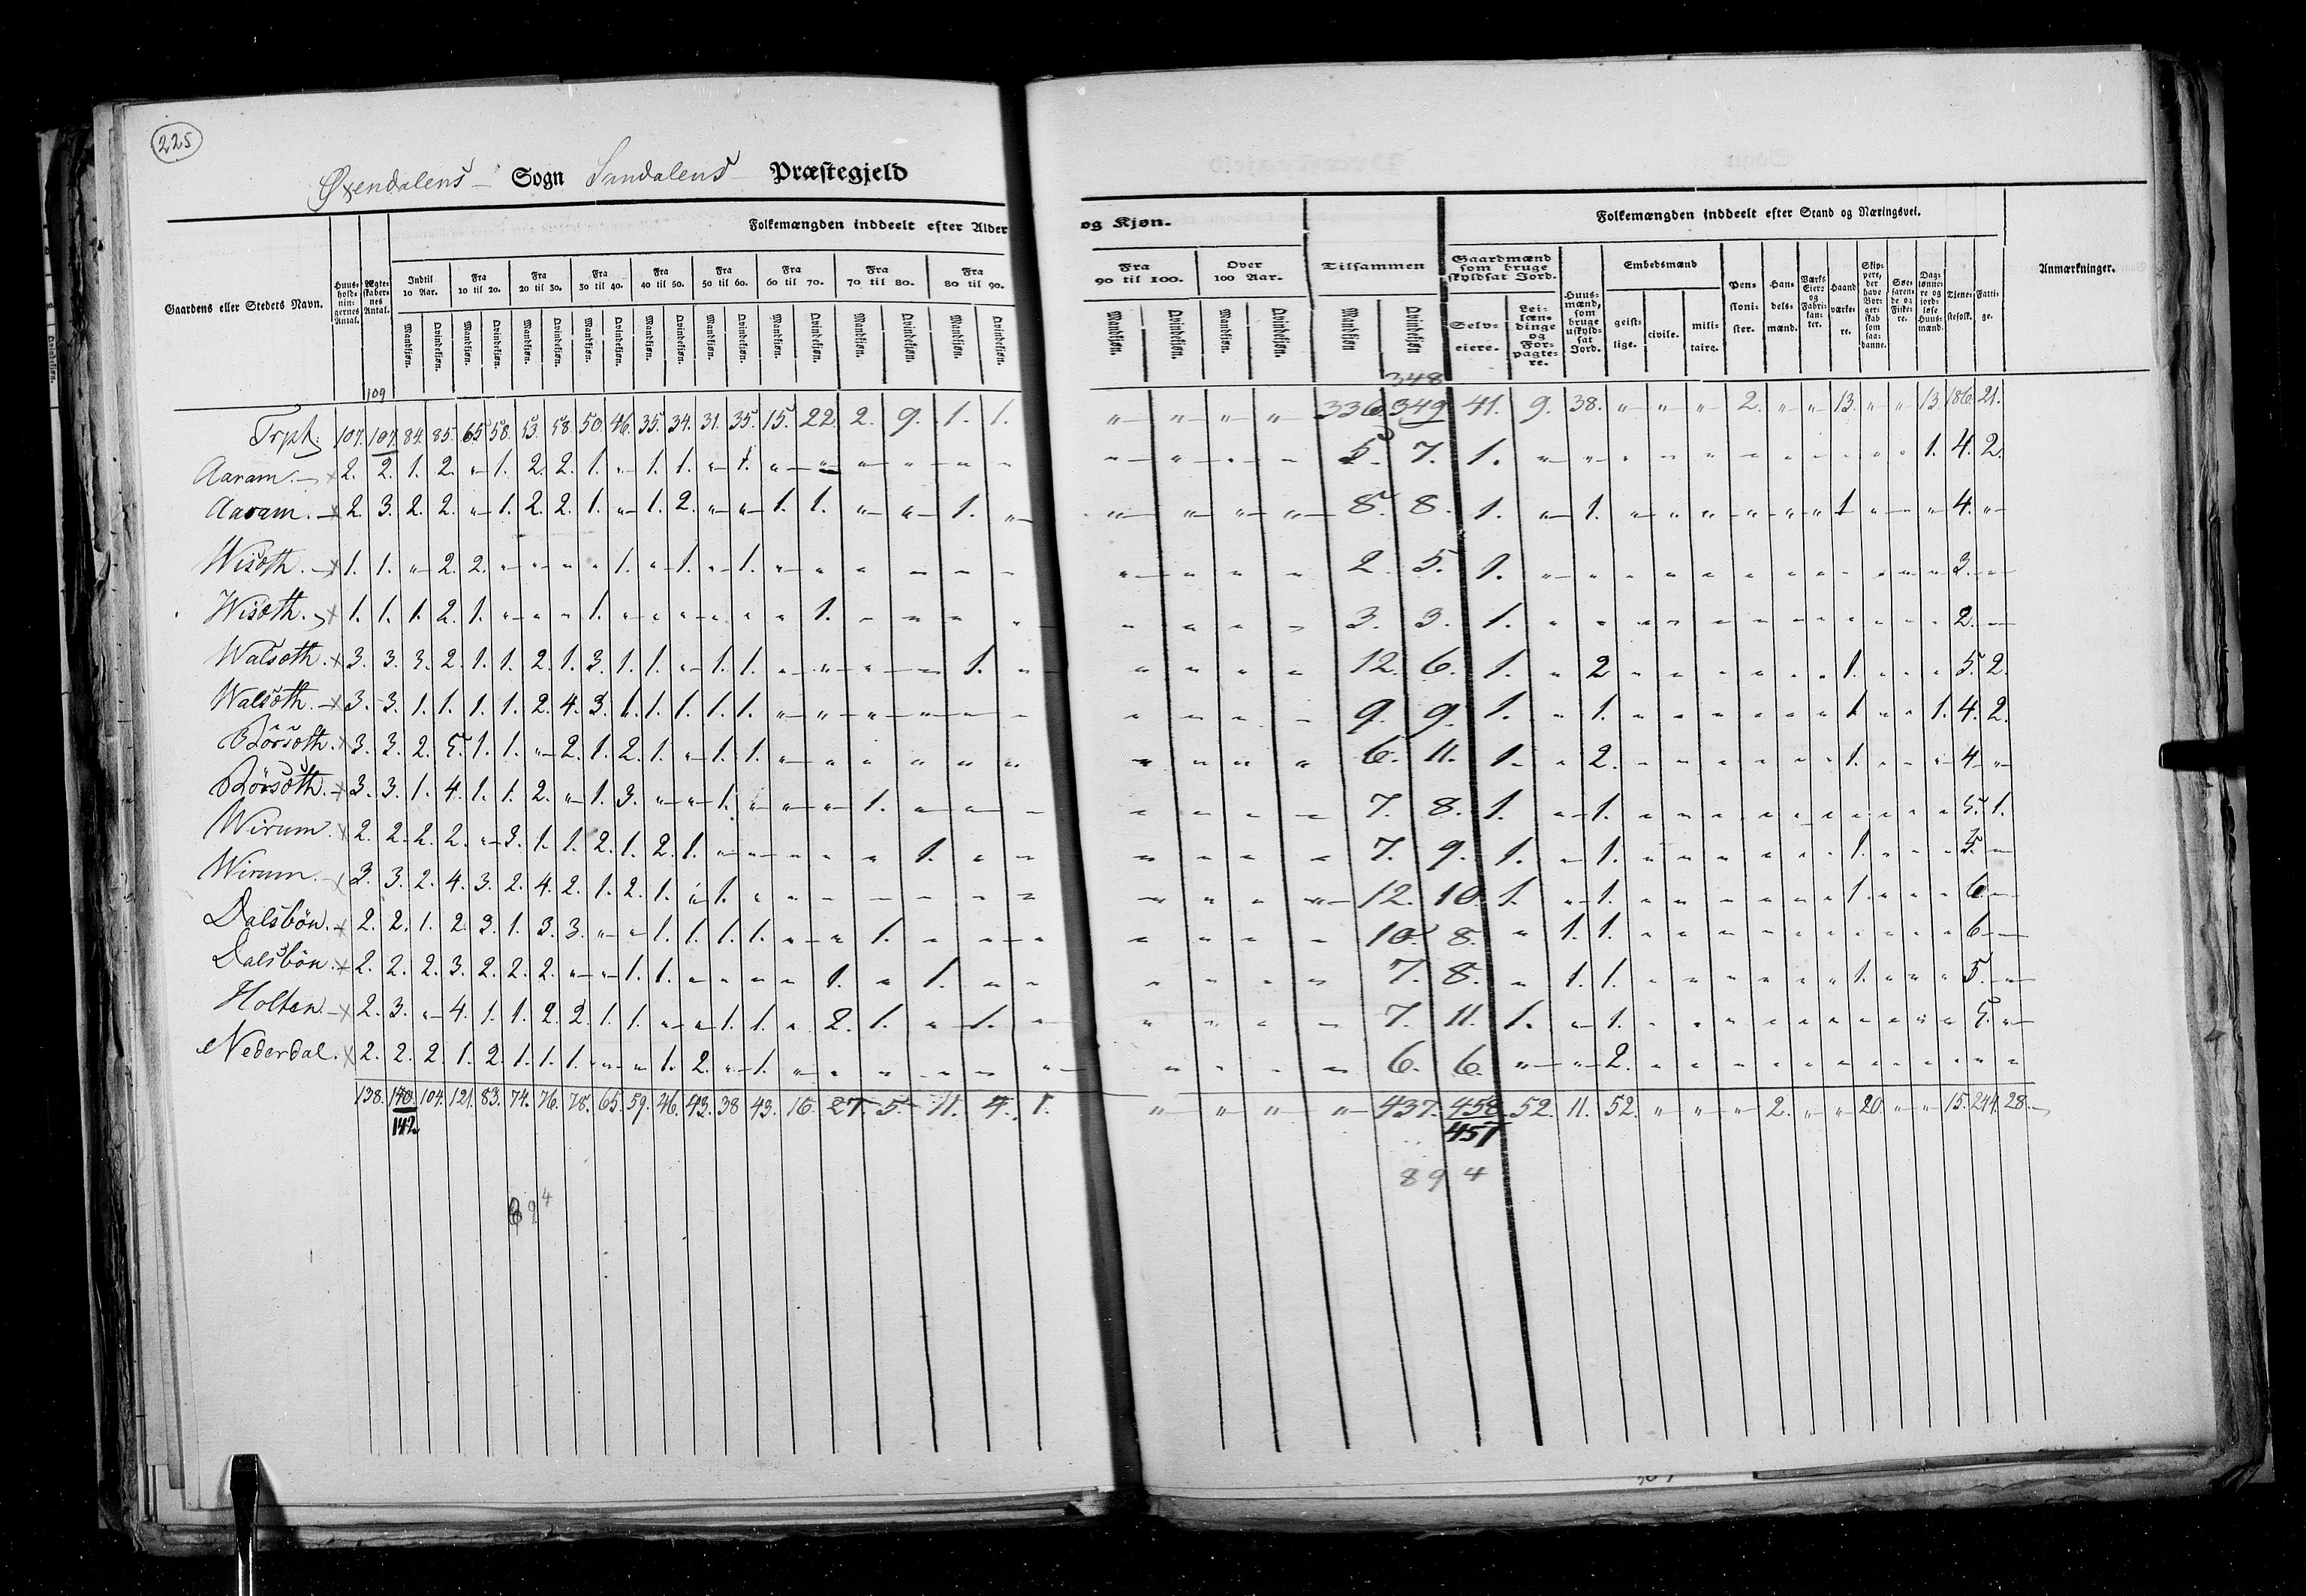 225
Øxendalens Sogn Sundalens Præstegjeld
Folkemængden inddeelt efter Alder og Kjøn.
Folkemængden inddeelt efter Stand og Næringsvei.
Gaardens eller Stedets Navn. Huus-hold-nin-gernes Antal. Ægte-skaber-nes Antal. Indtil 10 Aar. Fra 10 til 20. Fra 20 til 30. Fra 30 til 40. Fra 40 til 50. Fra 50 til 60. Fra 60 til 70. Fra 70 til 80. Fra 80 til 90. Fra 90 til 100. Over 100 Aar. Tilsammen Gaardmænd som bruge skyldsat Jord. Huus-mænd, som bruge uskyld-sat Jord. Embedsmænd Pen-sioni-ster. Han-dels-mænd. Værks Eier og Fabri-kan-ter. Haand værke-re. Skip-pere, der have Bor-ger-skab som saa-danne. Søe-faren-de og Fiske-re. Dag-lønne-re og jord-løse Huus-mænd. Tjene-stefolk. Fatti-ge. Anmærkninger.
Mandkjøn. Qvindekjøn. Mandkjøn. Qvindekjøn. Mandkjøn. Qvindekjøn. Mandkjøn. Qvindekjøn. Mandkjøn. Qvindekjøn. Mandkjøn. Qvindekjøn. Mandkjøn. Qvindekjøn. Mandkjøn. Qvindekjøn Mandkjøn. Qvindekjøn. Mandkjøn. Qvindekjøn. Mandkjøn. Qvindekjøn. Mandkjøn Qvindekjøn Selv-eiere. Lei-læn-dinge og For-pagte-re. geist-lige. civile. mili-taire.
109 348
Trpt. 107. 107. 84. 85. 65. 58. 53. 58. 50. 46. 35. 34. 31. 35. 15. 22. 2. 9. 1. 1. " " " " 336. 349 41. 9. 38. " " " 2. " " 13. " " 13. 186. 21.
Aaram. 2. 2. 1. 2. " 1. 2. 2. 1. " 1. 1. " 1. " " " " " " " " " " 5. 7. 1. " " " " " " " " " " " 1. 4. 2.
Aaram. 2. 3. 2. 2. " 1. 2. 2. 1. " 1. 2. " " 1. 1. " " 1. " " " " " 8. 8. 1. " 1. " " " " " " 1 " " " 4. "
Wisøth. 1. 1. " 2. 2. " " " " 1. " 1. " 1. " " " " " " " " " " 2. 5. 1. " " " " " " " " " " " " 3. "
Wisøth. 1. 1. 1. 2. 1. " " " 1. " " " " " " 1. " " " " " " " " 3. 3. 1. " " " " " " " " " " " " 2. "
Walsøth. 3. 3. 3. 2. 1. 1. 2. 1. 3. 1. 1. " 1. 1. " " " " 1. " " " " " 12. 6. 1. " 2 " " " " " " 1. " " " 5. 2.
Walsøth. 3. 3. 1. 1. 1. 1. 2. 4. 3. 1. 1. 1. 1. 1. " " " " " " " " " " 9. 9. 1. " 1. " " " " " " 1 " " 1. 4. 2.
Börsøth. 3. 3. 2. 5. 1. 1. " 2. 1. 2. 1. " 1. 1. " " " " " " " " " " 6. 11. 1. " 2. " " " " " " 1. " " " 4 "
Börsøth. 3. 3. 1. 4. 1. 1. 2. " 1. 3. " " 1. " " " 1. " " " " " " " 7. 8. 1. " 1. " " " " " " " " " " 5. 1.
Wirum. 2. 2. 2. 2. " 3. 1. 1. 2. 1. 2. 1. " " " " " 1. " " " " " " 7. 9. 1. " 1. " " " " " " 1. " " " 5. "
Wirum. 3. 3. 2. 4. 3. 2. 4. 2. 1. 2. 1. " 1. " " " " " " " " " " " 12. 10. 1. " 1. " " " " " " 1. " " " 6. "
Dalsbön. 2. 2. 1. 2. 3. 1. 3. 3. " " 1. 1. 1. 1. " " 1. " " " " " " " 10. 8. " 1. 1. " " " " " " " " " " 6 "
Dalsbön. 2. 2. 2. 3. 2. 2. 2. " " 1. 1. " " " " 1. " 1. " " " " " " 7. 8. " 1. 1. " " " " " " 1. " " " 5. "
Holten. 2. 3. " 4. 1. 1. 2. 2. 1. 1. " " 1. 1. " 2. 1. " 1. " " " " " 7. 11. 1. " 1. " " " " " " " " " " 5. "
Nederdal. 2. 2. 2. 1. 2. 1. 1. 1. " " 1. 2. " 1. " " " " " " " " " " 6. 6. " " 2. " " " " " " " " " " " "
138. 140. 104. 121. 83. 74. 76. 78. 65. 59. 46. 43. 38 43. 16. 27. 5. 11. 4. 1. " " " " 437. 458 52. 11. 52. " " " 2. " " 20 " " 15. 244. 28.
142 457
894
894